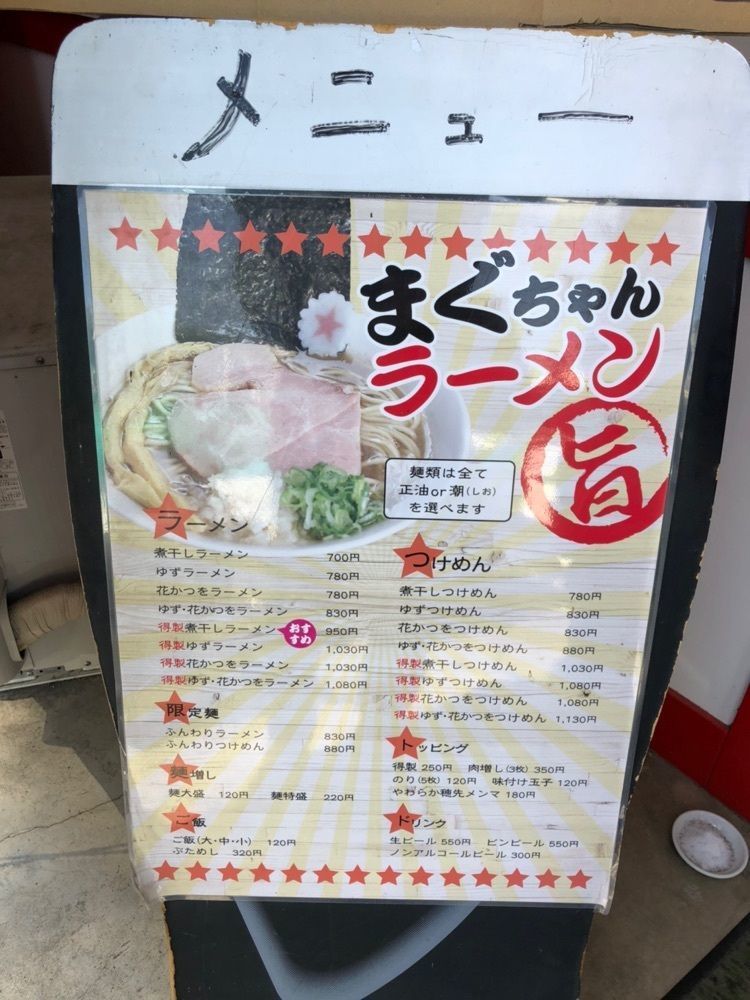 メニュー
まぐちゃん
ラーメン
旨
麺類は全て
正油or潮(しお)
を選べます
ラーメン
煮干しラーメン 700円
ゆずラーメン 780円
花かつをラーメン 780円
ゆず・花かつをラーメン 830円
得製煮干しラーメン おすすめ 950円
得製ゆずラーメン 1,030円
得製花かつをラーメン 1,030円
得製ゆず・花かつをラーメン 1,080円
限定麺
ふんわりラーメン 830円
ふんわりつけめん 880円
麺増し
麺大盛 120円 麺特盛 220円
ご飯
ご飯(大・中・小) 120円
ぶためし 320円
つけめん
煮干しつけめん 780円
ゆずつけめん 830円
花かつをつけめん 830円
ゆず・花かつをつけめん 880円
得製煮干しつけめん 1,030円
得製ゆずつけめん 1,080円
得製花かつをつけめん 1,080円
得製ゆず・花かつをつけめん 1,130円
トッピング
得製 250円 肉増し(3枚) 350円
のり(5枚) 120円 味付け玉子 120円
やわらか穂先メンマ 180円
ドリンク
生ビール 550円 ビンビール 550円
ノンアルコールビール 300円